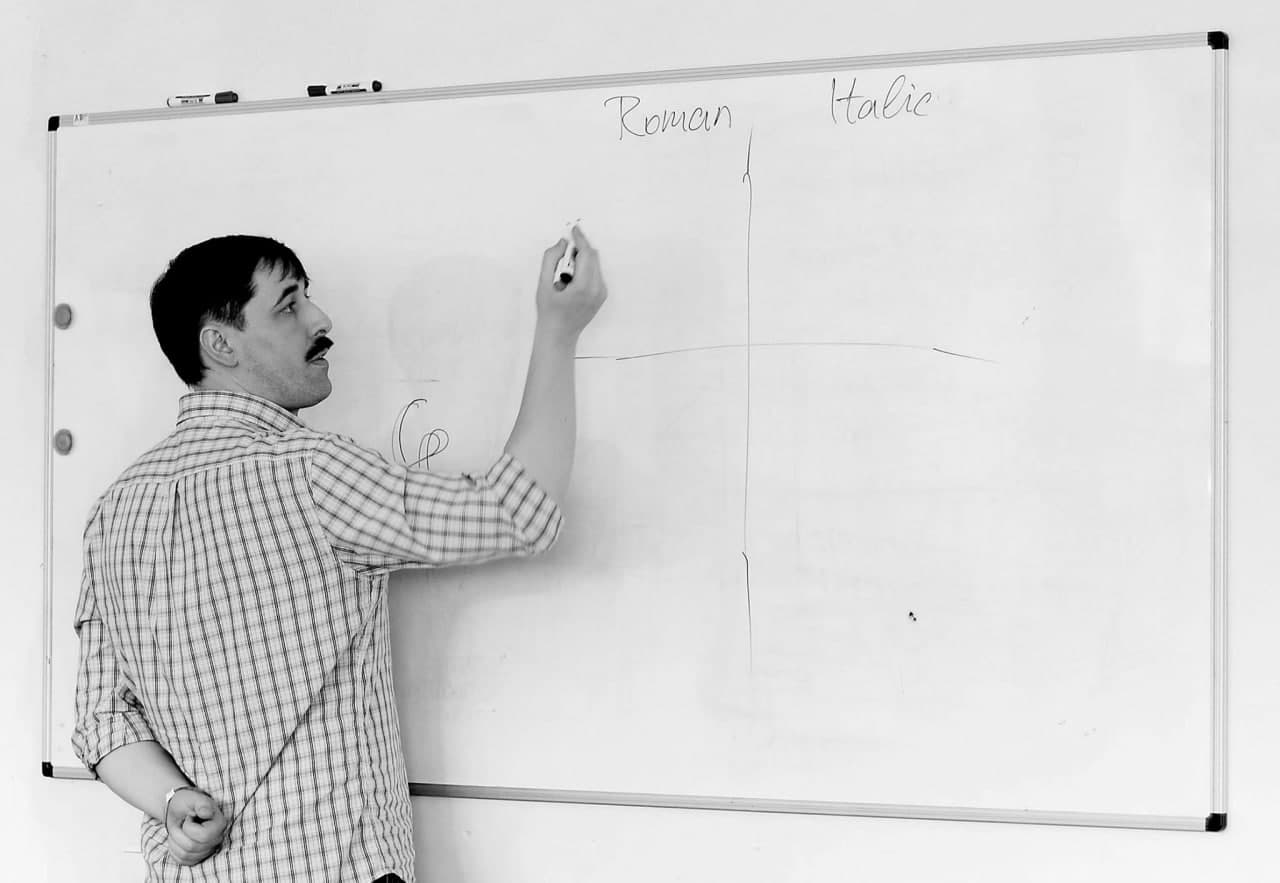 Roman Italic